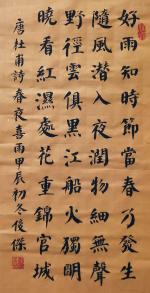 好雨知時節當春乃發生
隨風潛入夜潤物細無聲
野徑雲俱黑江船火獨明
曉看紅濕處花重錦官城
唐杜甫詩春夜喜雨甲辰初冬俊傑